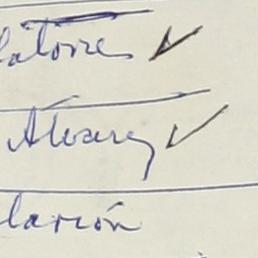 látorre ✓
Alvarez ✓
larión